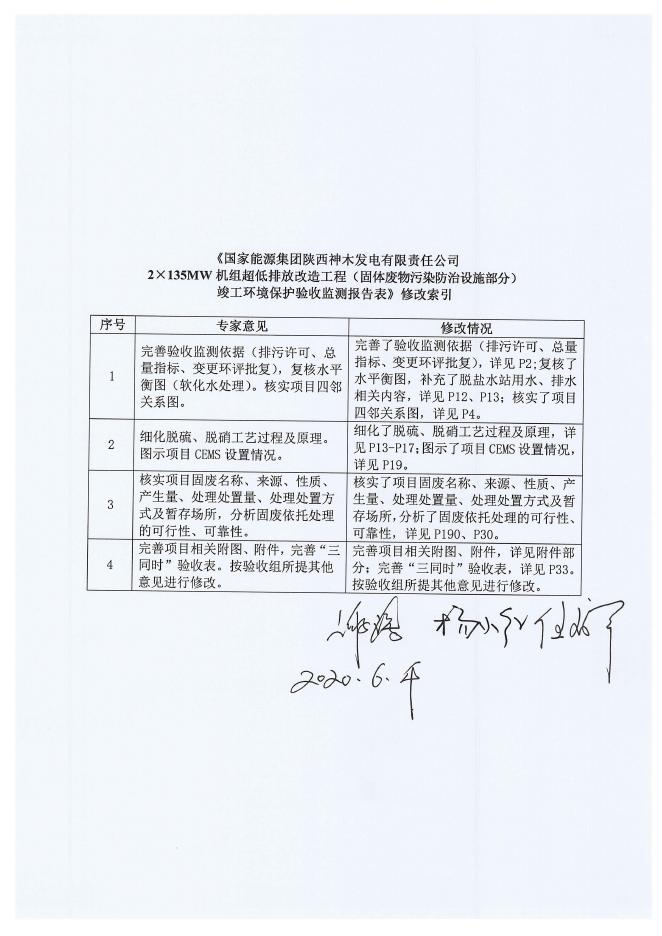 《国家能源集团陕西神木发电有限责任公司
2×135MW 机组超低排放改造工程（固体废物污染防治设施部分）
竣工环境保护验收监测报告表》修改索引
序号 专家意见 修改情况
1
完善验收监测依据（排污许可、总
量指标、变更环评批复），复核水平
衡图（软化水处理）。核实项目四邻
关系图。
完善了验收监测依据（排污许可、总量
指标、变更环评批复），详见 P2;复核了
水平衡图，补充了脱盐水站用水、排水
相关内容，详见 P12、P13；核实了项目
四邻关系图，详见 P4。
2
细化脱硫、脱硝工艺过程及原理。
图示项目 CEMS 设置情况。
细化了脱硫、脱硝工艺过程及原理，详
见 P13-P17;图示了项目 CEMS 设置情况，
详见 P19。
3
核实项目固废名称、来源、性质、
产生量、处理处置量、处理处置方
式及暂存场所，分析固废依托处理
的可行性、可靠性。
核实了项目固废名称、来源、性质、产
生量、处理处置量、处理处置方式及暂
存场所，分析了固废依托处理的可行性、
可靠性，详见 P190、P30。
4
完善项目相关附图、附件，完善“三
同时”验收表。按验收组所提其他
意见进行修改。
完善项目相关附图、附件，详见附件部
分；完善“三同时”验收表，详见 P33。
按验收组所提其他意见进行修改。
2020.6.